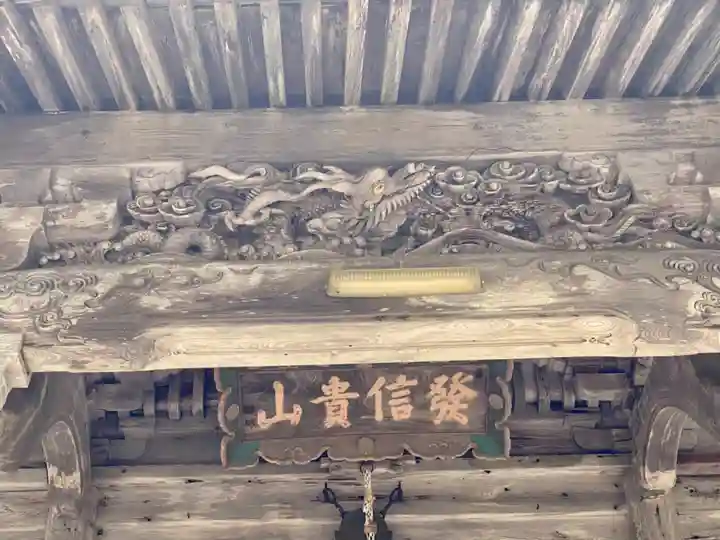 發信貴山